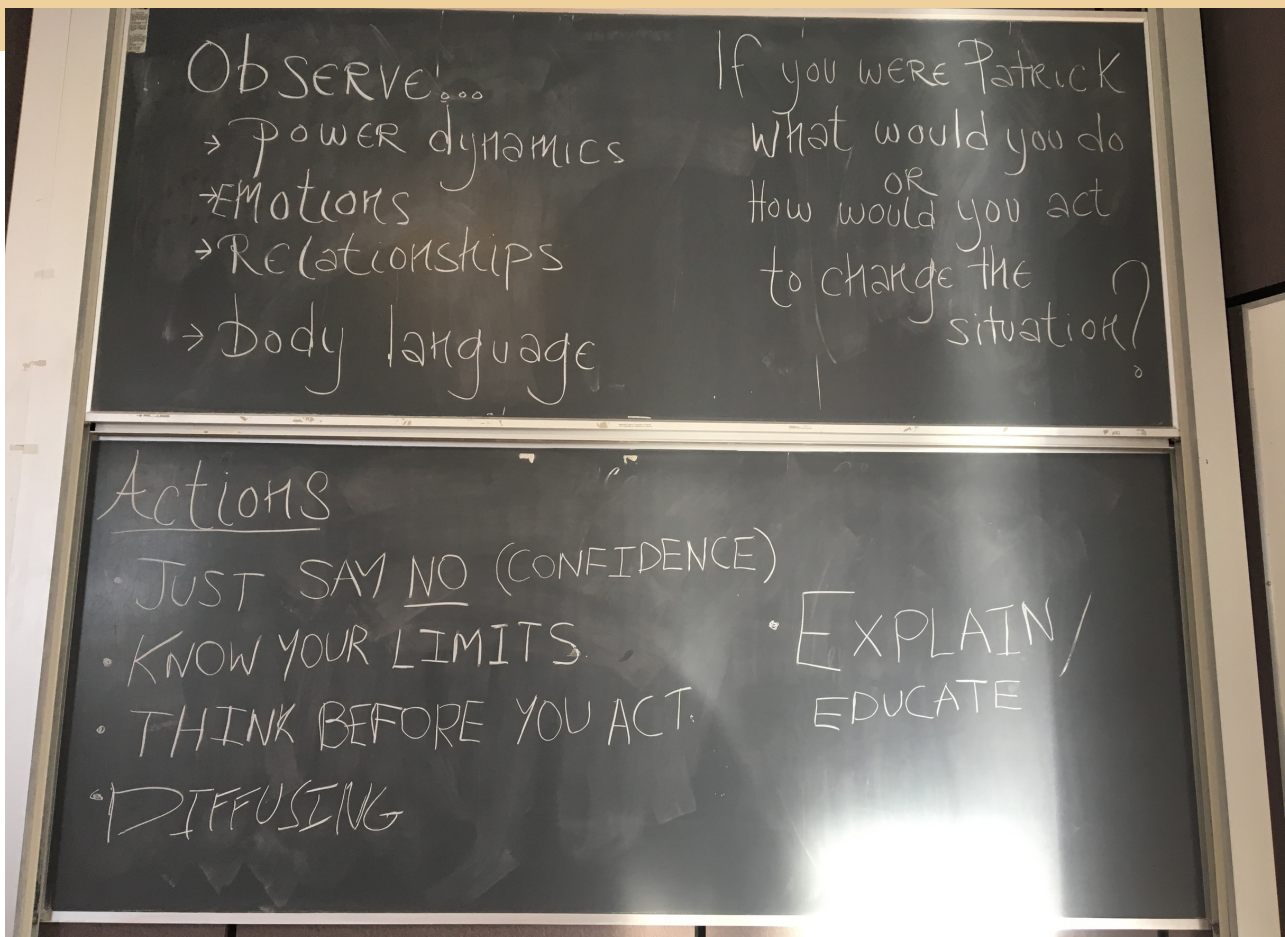 ObSERVE...
→ POWER dynamics
→ EMotions
→ Relationships
→ body language
If you WERE Patrick
what would you do
OR
How would you act
to change the
situation?
Actions
• JUST SAY NO (CONFIDENCE)
• KNOW YOUR LIMITS.
• THINK BEFORE YOU ACT.
• DIFFUSING
• EXPLAIN/
EDUCATE